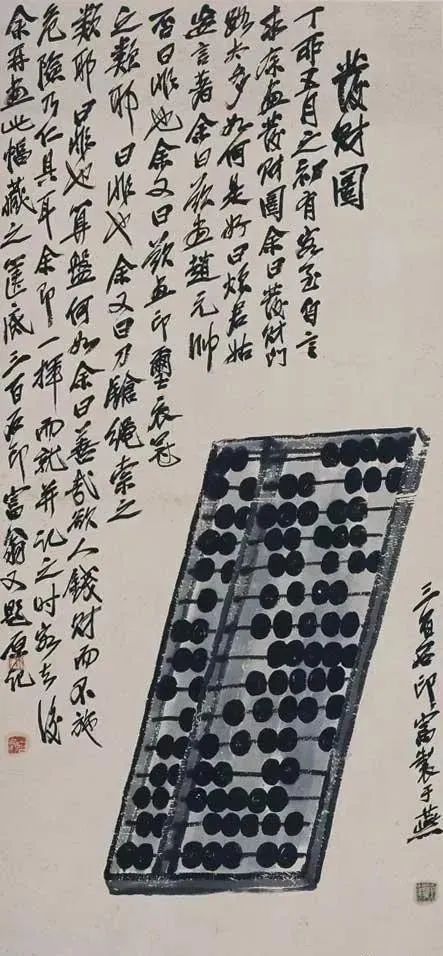 發財圖
丁卯五月之初有客至自言
求余畫發財圖余曰發財門
路太多如何是好曰煩君姑
妄言著余曰欲畫趙元帥
否曰非也余又曰欲畫印璽衣冠
之類耶曰非也余又曰刀鎗繩索之
類耶曰非也算盤何如余曰善哉欲人錢財而不施
危險乃仁具耳余即一揮而就并記之時客去後
余再畫此幅藏之篋底三百石印富翁又題原記
三百石印富製于燕